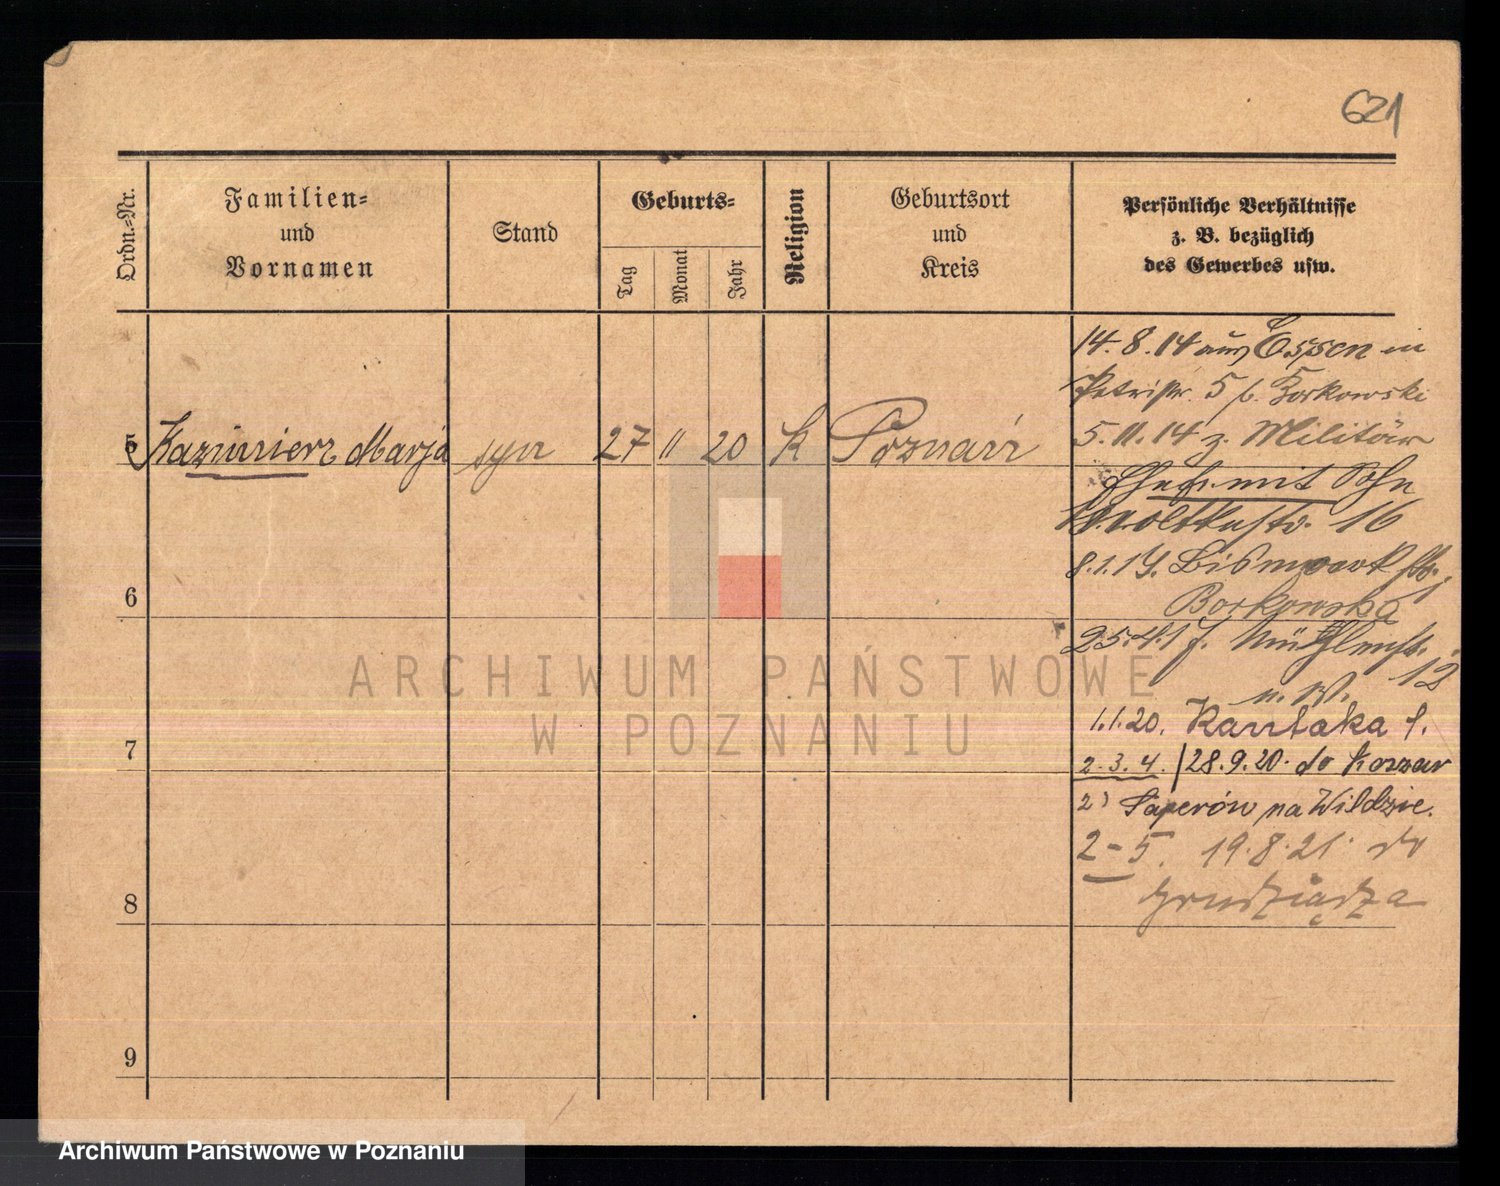 621
Ordn.-Nr.
Familien-
und
Vornamen
Stand
Geburts-
Tag
Monat
Jahr
Religion
Geburtsort
und
Kreis
Persönliche Verhältnisse
z. B. bezüglich
des Gewerbes usw.
5 Kazimierz Marja syn 27 11 20 k Poznań
6
7
8
9
14.8.14 aus Essen in
Petristr. 5 b. Borkowski
5.11.14 z. Militär
Ehefr. mit Sohn
Moltkestr. 16
8.1.19. Bismarckstr.
Borkowska
25.4.1 Mühlenstr.
12
n. W.
1.1.20. Kantaka 1.
2.3.4. / 28.9.20. do Koszar
2) Saperów na Wildzie.
2-5. 19.8.21. do
Grudziądza
ARCHIWUM PAŃSTWOWE
W POZNANIU
Archiwum Państwowe w Poznaniu